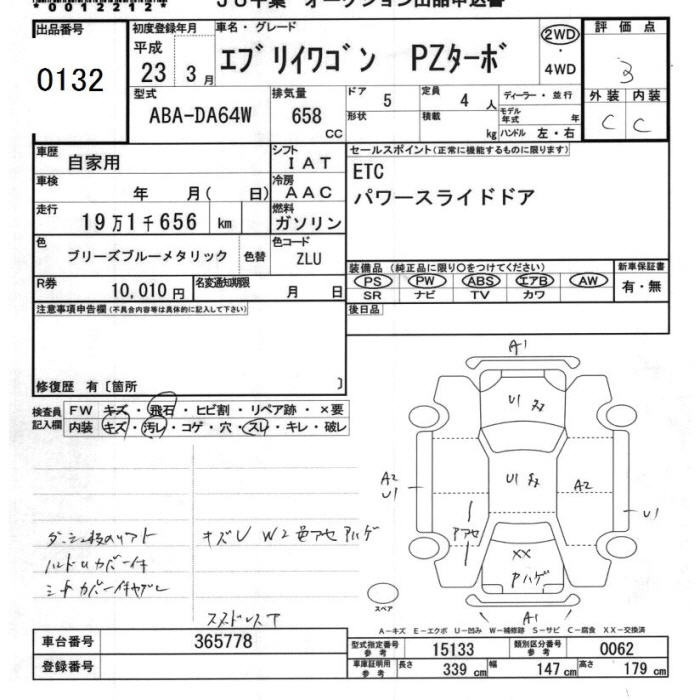 00122124
JU千葉 オークション出品申込書
出品番号
0132
初度登録年月
平成
23 3月
車名・グレード
エブリイワゴン PZターボ
2WD
・
4WD
評価点
3
外装 内装
C C
型式
ABA-DA64W
排気量
658
CC
ドア 5
定員 4 人
形状
積載 kg
ディーラー・並行
モデル年式 年
ハンドル 左・右
車歴 自家用
シフト IAT
車検 年 月( 日)
冷房 AAC
走行 19万1千656 km
燃料 ガソリン
色 ブリーズブルーメタリック 色替
色コード ZLU
R券 10,010円
名変通知期限 月 日
セールスポイント(正常に機能するものに限ります)
ETC
パワースライドドア
装備品(純正品に限り○をつけてください)
PS PW ABS エアB AW
SR ナビ TV カワ
新車保証書
有・無
後日品
注意事項申告欄(不具合内容等は具体的に記入して下さい)
修復歴 有〔箇所 〕
検査員
記入欄
FW キズ・飛石・ヒビ割・リペア跡・×要
内装 キズ・汚レ・コゲ・穴・スレ・キレ・破レ
キズU W2 色アセ Aハゲ
ハンドルカバー付
シートカバー付ヤブレ
スタッドレスT
A1
U1
U1
A2
U1
A2
U1
アセ
XX
Pハゲ
A1
スペア
A-キズ E-エクボ U-凹み W-補修跡 S-サビ C-腐食 XX-交換済
車台番号 365778
登録番号
型式指定番号
参考
15133
類別区分番号
参考
0062
車庫証明用
参考
長さ 339 cm 幅 147 cm 高さ 179 cm